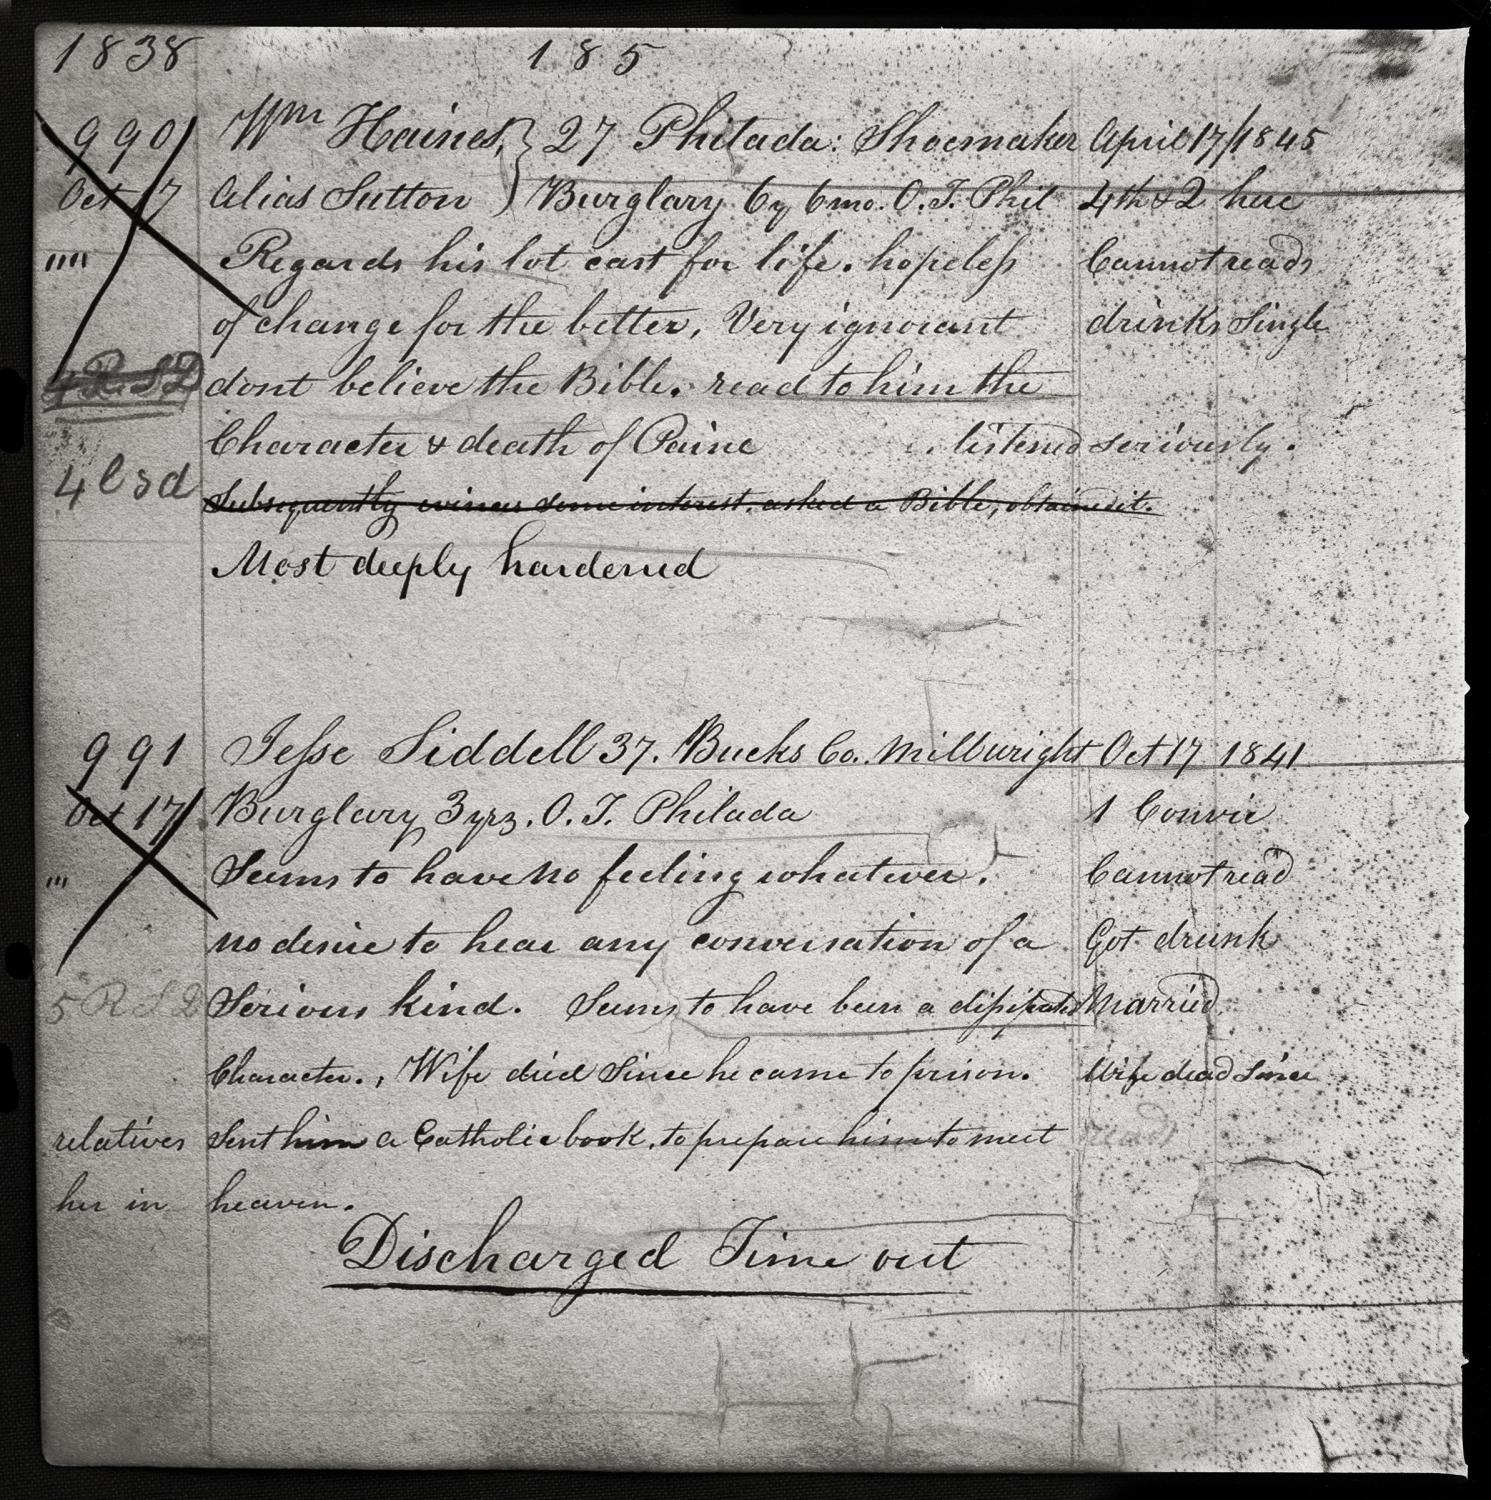 1838 185
990 Wm Haines, } 27 Philada: Shoemaker April 17/1845
Oct 17 Alias Sutton ) Burglary 6y 6mo. O.T. Phil 4th & 2 here
"" Regards his lot cast for life. hopeless Cannot read
of change for the better, Very ignorant drinks Single
4 R. S D dont believe the Bible. read to him the
Character & death of Paine listened seriously.
4 l s d Subsequently evinces some interest. asked a Bible, obtained it.
Most deeply hardened
991 Jesse Siddell 37. Bucks Co. Millwright Oct 17 1841
Oct 17 Burglary 3 yrs. O. T. Philada 1 Convic
"' Seems to have no feeling whatever. Cannot read
no desire to hear any conversation of a Got drunk
5 R S D Serious kind. Seems to have been a dissipated Married
Character., Wife died Since he came to prison. Wife dead Since
relatives Sent him a Catholic book, to prepare him to meet reads
her in heaven.
Discharged Time out